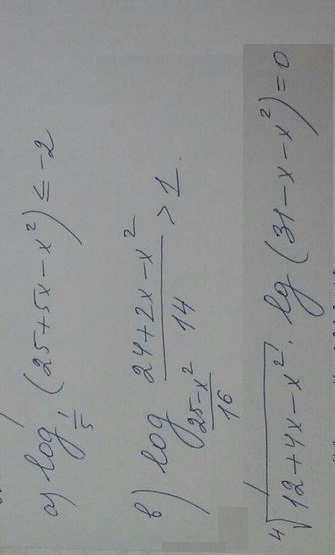 a) log_{1/5} (25+5x-x²) ≤ -2
в) log_{(25-x²)/16} (24+2x-x²)/14 > 1.
⁴√(12+4x-x²) · lg (31-x-x²) = 0